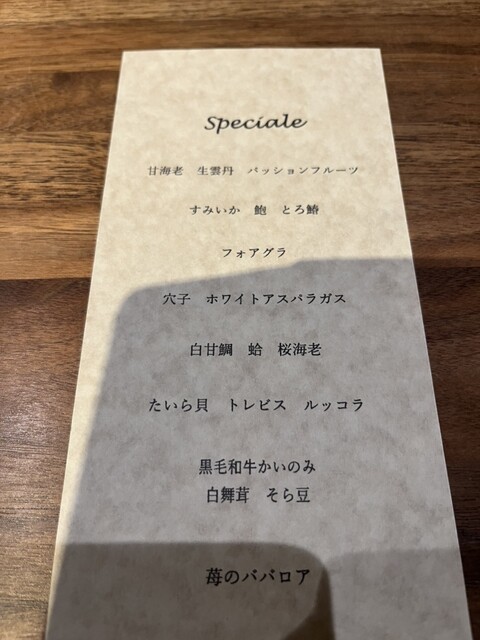 Speciale
甘海老 生雲丹 パッションフルーツ
すみいか 鮑 とろ鰆
フォアグラ
穴子 ホワイトアスパラガス
白甘鯛 蛤 桜海老
たいら貝 トレビス ルッコラ
黒毛和牛かいのみ
白舞茸 そら豆
苺のババロア